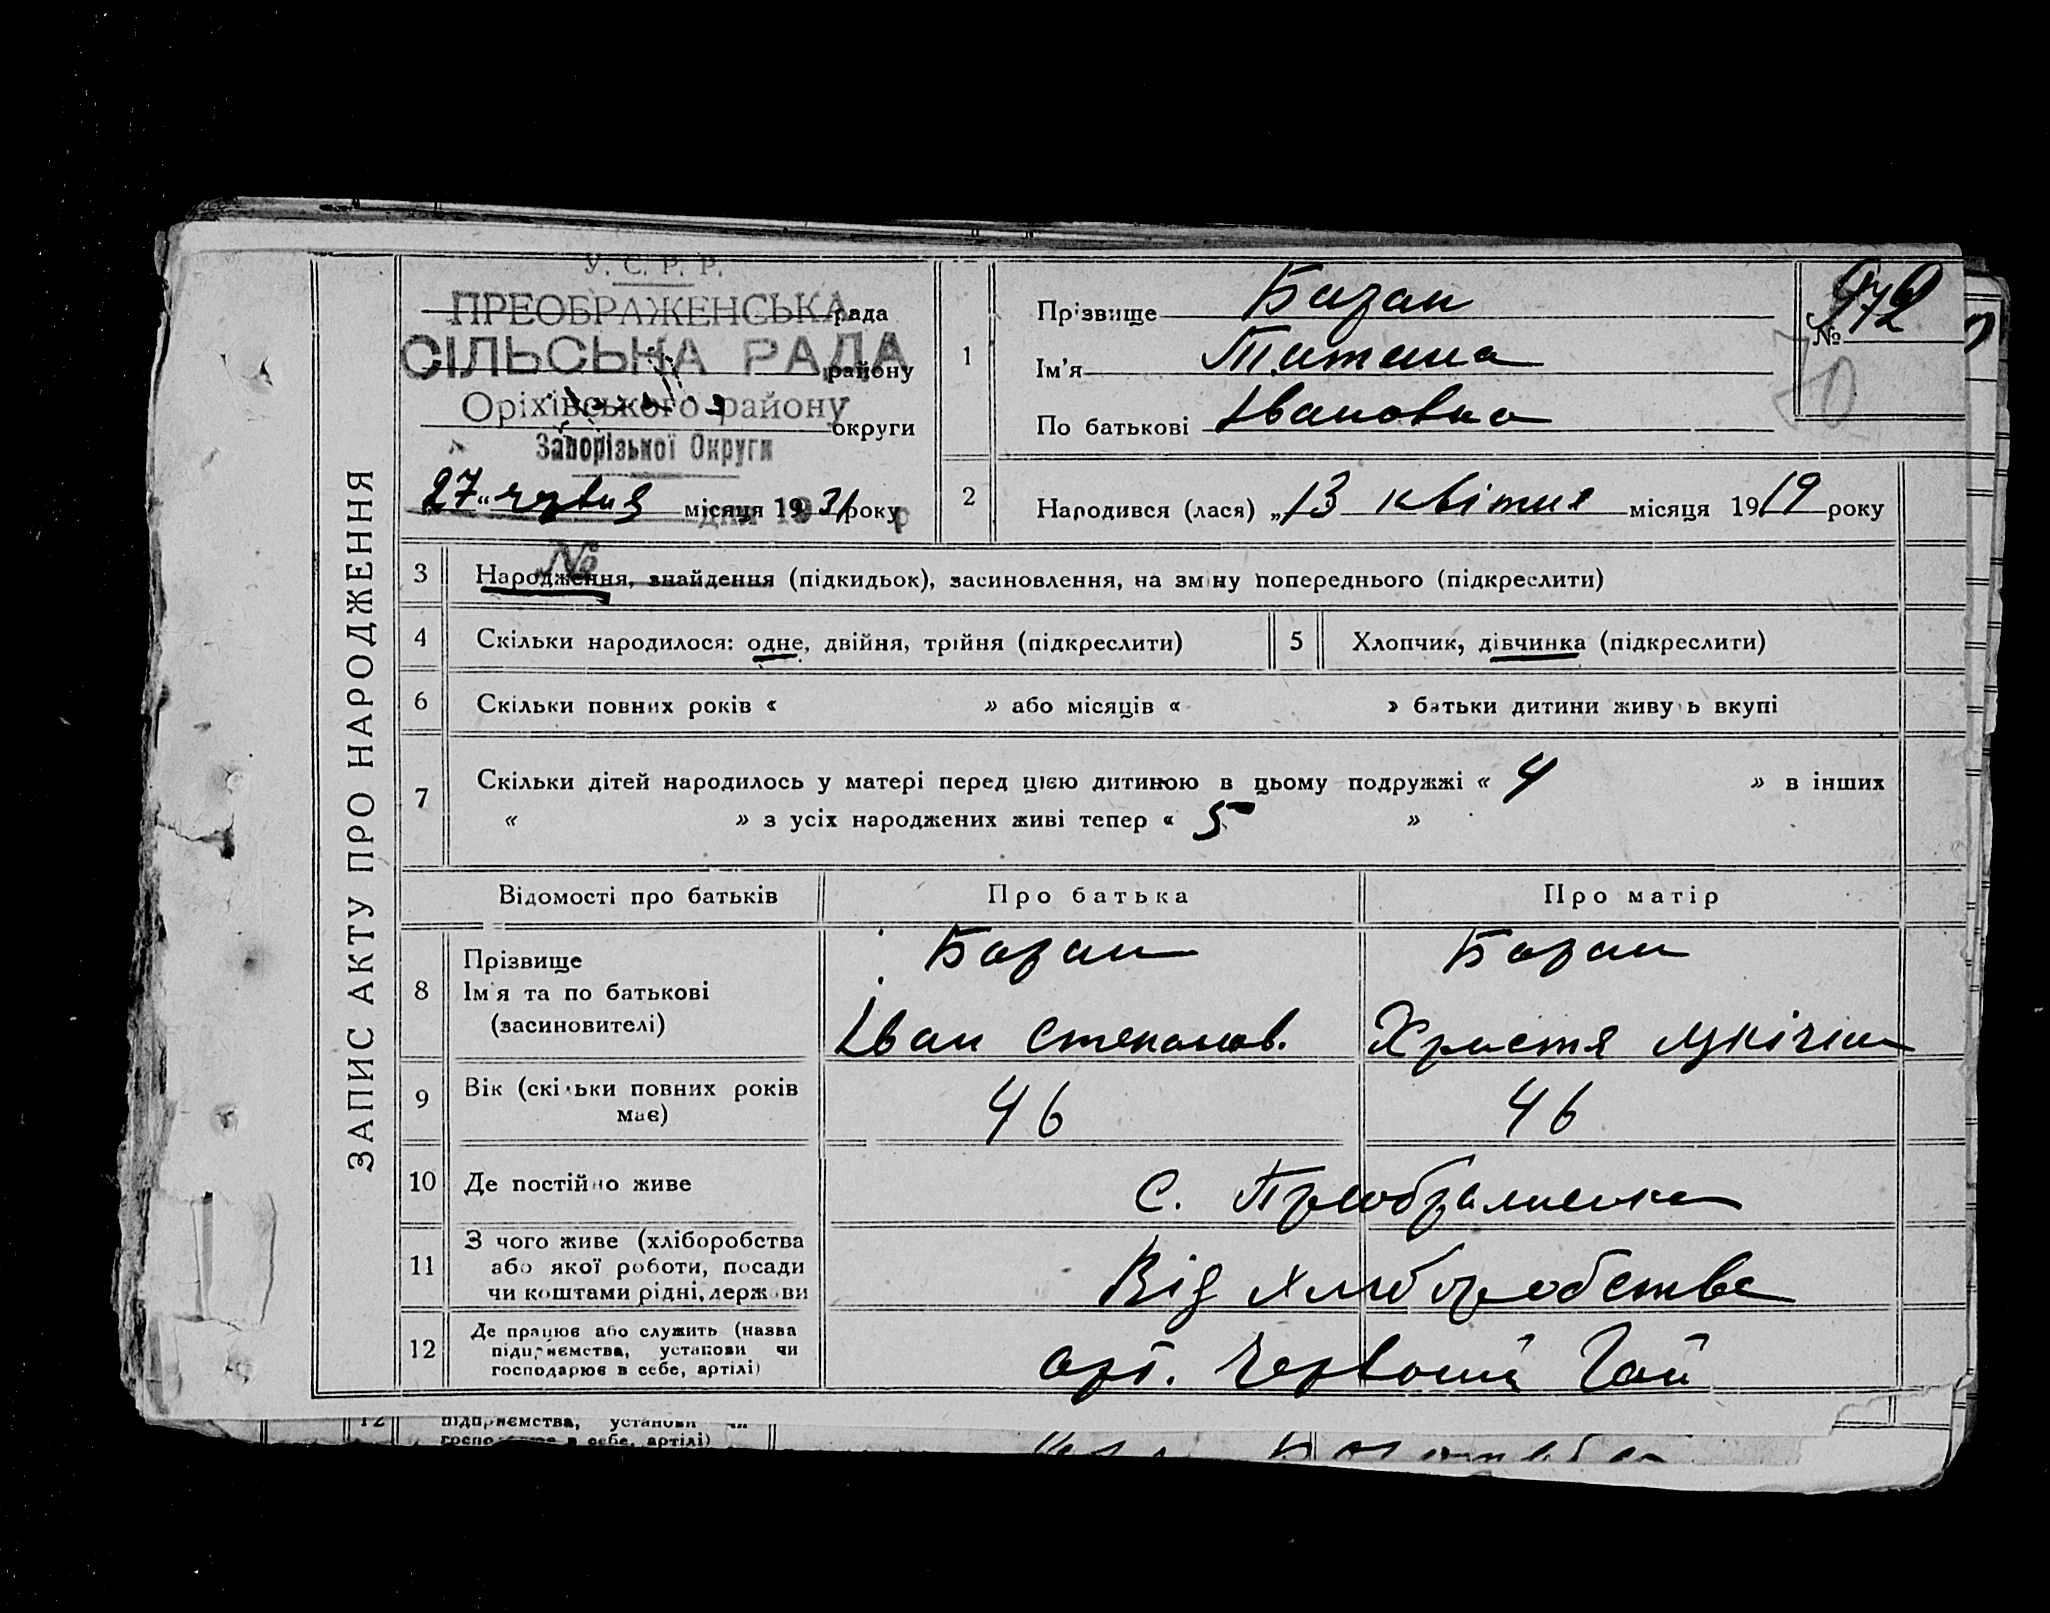 ЗАПИС АКТУ ПРО НАРОДЖЕННЯ
У. С. Р. Р.
ПРЕОБРАЖЕНСЬКА рада
СІЛЬСЬКА РАДА району
Оріхівського району
округи
Запорізької Округи
„27“ червня місяця 1931 року
№
1
Прізвище Базан
Ім'я Титяна
По батькові Івановна
№ 972
70
2
Народився (лася) „13 квітня місяця 1919 року
3 Народження, знайдення (підкидьок), засиновлення, на зміну попереднього (підкреслити)
4 Скільки народилося: одне, двійня, трійня (підкреслити)
5 Хлопчик, дівчинка (підкреслити)
6 Скільки повних років « » або місяців « » батьки дитини живуть вкупі
7 Скільки дітей народилось у матері перед цією дитиною в цьому подружжі « 4 » в інших
« » з усіх народжених живі тепер « 5 »
Відомості про батьків Про батька Про матір
8 Прізвище
Ім'я та по батькові
(засиновителі)
Базан
Іван Степанов.
Базан
Христя
9 Вік (скільки повних років
має)
46 46
10 Де постійно живе с. Преображенка
11 З чого живе (хліборобства
або якої роботи, посади
чи коштами рідні, держави
Від хліборобства
12 Де працює або служить (назва
підприємства, установи чи
господарює в себе, артілі)
арт. Червоний Гай
12 підприємства, установи чи
господарює в себе, артілі)